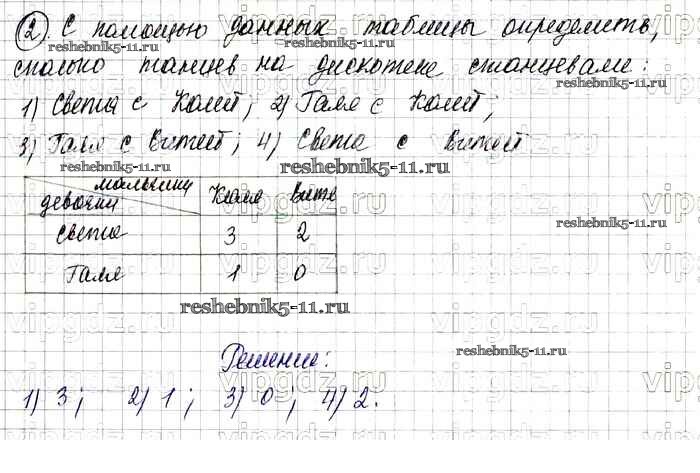 2. С помощью данных таблицы определить,
сколько танцев на дискотеке станцевали:
1) Света с Колей; 2) Галя с Колей;
3) Галя с Витей; 4) Света с Витей
мальчики
девочки
Коля Витя
Света 3 2
Галя 1 0
Решение:
1) 3; 2) 1; 3) 0; 4) 2.
reshebnik5-11.ru
reshebnik5-11.ru
reshebnik5-11.ru
reshebnik5-11.ru
reshebnik5-11.ru
reshebnik5-11.ru
reshebnik5-11.ru
reshebnik5-11.ru
vipgdz.ru